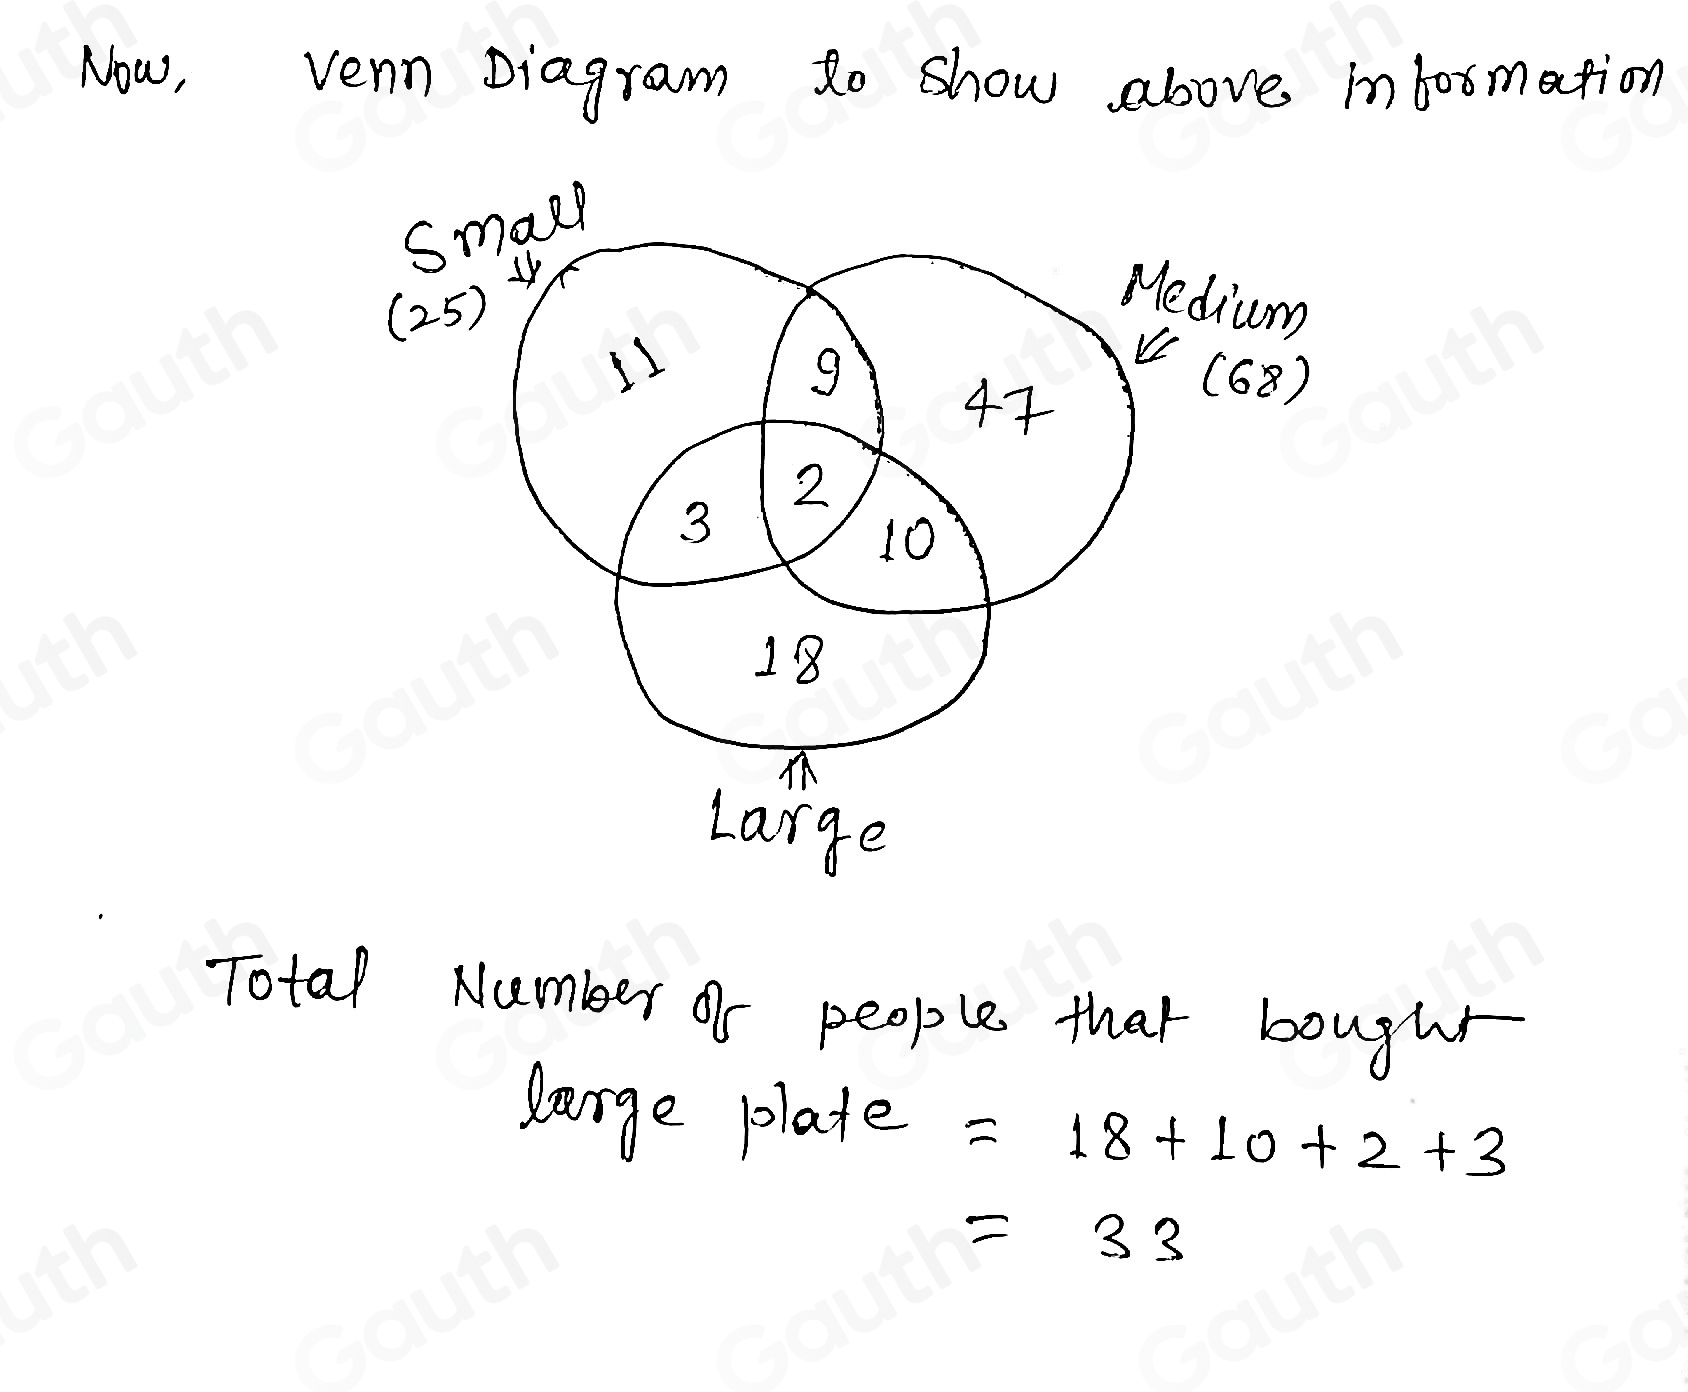 Now, Venn Diagram to show above information
Small
(25)
Medium
(68)
11
9
47
3
2
10
18
Large
Total Number of people that bought
large plate = 18 + 10 + 2 + 3
= 33
Gauth